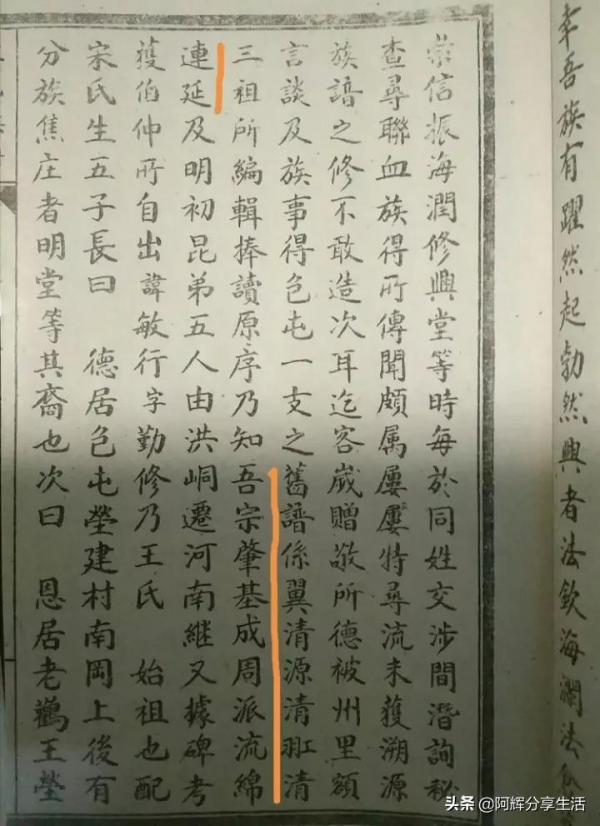 幸吾族有躍然起勃然興者法欽海瀾法
崇信振海潤修興堂等時每於同姓交涉間潛詢秘
查尋聯血族得所傳聞頗属屢屢特尋流未獲溯源
族譜之修不敢造次耳迄客歲贈敬所德被州里額
言談及族事得色屯一支之舊譜係翼清源清清
三祖所編輯捧讀原序乃知吾宗肇基成周派流綿
連延及明初昆弟五人由洪峒遷河南継又據碑考
獲伯仲所自出諱敏行字勤修乃王氏 始祖也配
宋氏生五子長曰 德居色屯塋建村南岡上後有
分族焦庄者明堂等其裔也次曰 恩居老鸛王塋
头条 @阿辉分享生活